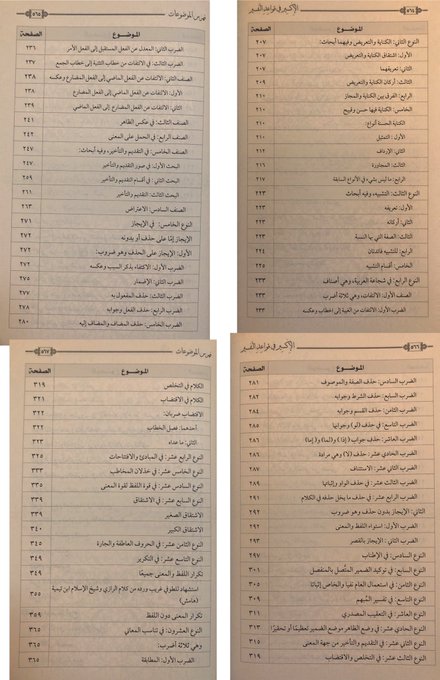 ٥٦٤ الإكسير في قواعد التفسير
الموضوع الصفحة
النوع الثاني: الكناية والتعريض وفيهما أبحاث: ٢٠٧
الأول: اشتقاق الكناية والتعريض ٢٠٧
الثاني: تعريفهما ٢٠٧
الثالث: أركان الكناية والتعريض ٢٠٨
الرابع: الفرق بين الكناية والمجاز ٢١٠
الخامس: الكناية فيها حسن وقبيح ٢١٠
الكناية الحسنة أنواع: ٢١٠
الأول: التمثيل ٢١٠
الثاني: الإرداف ٢١٢
الثالث: المجاورة ٢١٦
الرابع: ما ليس بشيء في الأنواع السابقة ٢١٧
النوع الثالث: التشبيه، وفيه أبحاث ٢٢٣
الأول: تعريفه ٢٢٣
الثاني: أركانه ٢٢٣
الثالث: الصفة التي بها النسبة ٢٢٣
الرابع: للتشبيه فائدتان ٢٢٤
الخامس: أقسام التشبيه ٢٢٥
النوع الرابع: في شجاعة العربية، وهي أصناف ٢٣٣
الصنف الأول: الالتفات، وهي ثلاثة أضرب ٢٣٣
الضرب الأول: الالتفات من الغيبة إلى الخطاب وعكسه ٢٣٣
فهرس الموضوعات ٥٦٥
الموضوع الصفحة
الضرب الثاني: المعدل عن الفعل المستقبل إلى الفعل الأمر ٢٣٦
الضرب الثالث: في الالتفات من خطاب التثنية إلى خطاب الجمع ٢٣٧
الصنف الثاني: الالتفات عن الفعل الماضي إلى الفعل المضارع وعكسه ٢٣٨
الأول: الالتفات عن الفعل الماضي إلى الفعل المضارع ٢٣٨
الثاني: الالتفات عن الفعل المضارع إلى الفعل الماضي ٢٣٩
الصنف الثالث: في عكس الظاهر ٢٤١
الصنف الرابع: في الحمل على المعنى ٢٤٢
الصنف الخامس: في التقديم والتأخير، وفيه أبحاث: ٢٤٧
البحث الأول: في صور التقديم والتأخير ٢٤٧
البحث الثاني: في أقسام التقديم والتأخير ٢٥٩
التقديم والتأخير ٢٦١
الصنف السادس: الاعتراض ٢٦٣
النوع الخامس: في الإيجاز ٢٧١
الإيجاز إمّا على حذف أو بدونه ٢٧٢
الأول: الإيجاز على الحذف وهو ضروب: ٢٧٢
الضرب الأول: الاكتفاء بذكر السبب وعكسه ٢٧٢
الضرب الثاني: الإضمار ٢٧٥
الضرب الثالث: حذف المفعول به ٢٧٧
الضرب الرابع: حذف الفعل وجوابه ٢٧٨
الضرب الخامس: حذف المضاف والمضاف إليه ٢٨٠
٥٦٦ الإكسير في قواعد التفسير
الموضوع الصفحة
الضرب السادس: حذف الصفة والموصوف ٢٨١
الضرب السابع: حذف الشرط وجوابه ٢٨٢
الضرب الثامن: حذف القسم وجوابه ٢٨٤
الضرب التاسع: حذف (لو) وجوابها ٢٨٥
الضرب العاشر: حذف جواب (إذا) و(لما) و(إما) ٢٨٦
الضرب الحادي عشر: حذف (لا) وهي مرادة ٢٨٦
الضرب الثاني عشر: الاستئناف ٢٨٧
الضرب الثالث عشر: حذف الواو وإثباتها ٢٨٩
الضرب الرابع عشر: في حذف ما يخل حذفه في الكلام ٢٩١
الثاني: الإيجاز بدون حذف وهو ضروب ٢٩٢
الضرب الأول: استواء اللفظ والمعنى ٢٩٢
الضرب الثاني: الإيجاز بالقصر ٢٩٣
النوع السادس: في الإطناب ٢٩٧
النوع السابع: في توكيد الضمير المتصل بالمنفصل ٣٠١
النوع الثامن: في استعمال العام نفيا والخاص إثباتا ٣٠٥
النوع التاسع: في تفسير المبهم ٣٠٩
النوع العاشر: في التعقيب المصدري ٣١١
النوع الحادي عشر: في وضع الظاهر موضع الضمير تعظيمًا أو تحقيرًا ٣١٣
النوع الثاني عشر: في التقديم والتأخير من جهة المعنى ٣١٥
النوع الثالث عشر: في التخلص والاقتضاب ٣١٩
فهرس الموضوعات ٥٦٧
الموضوع الصفحة
الكلام في التخلص ٣١٩
الكلام في الاقتضاب ٣٢١
الاقتضاب ضربان: ٣٢٢
أحدهما. فصل الخطاب ٣٢٢
الثاني: ما عداه ٣٢٣
النوع الرابع عشر: في المبادئ والافتتاحات ٣٢٥
النوع الخامس عشر: في خذلان المخاطب ٣٣٣
النوع السادس عشر: في قوة اللفظ لقوة المعنى ٣٣٥
النوع السابع عشر: في الاشتقاق ٣٣٩
الاشتقاق الصغير ٣٣٩
الاشتقاق الكبير ٣٤٠
النوع الثامن عشر: في الحروف العاطفة والجارة ٣٤٥
النوع التاسع عشر: في التكرير ٣٤٩
تكرار اللفظ والمعنى جميعًا ٣٤٩
استشهاد للطوفي غريب ورده من كلام الرازي وشيخ الإسلام ابن تيمية (هامش) ٣٥٥
تكرار المعنى دون اللفظ ٣٥٩
النوع العشرون: في تناسب المعاني ٣٦٥
وهي ثلاثة أضرب: ٣٦٥
الضرب الأول: المطابقة ٣٦٥